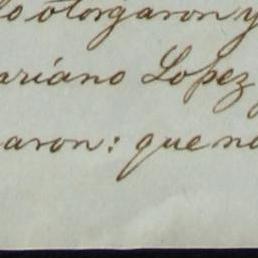 lo otorgaron y
ariano Lopez
aron: que no